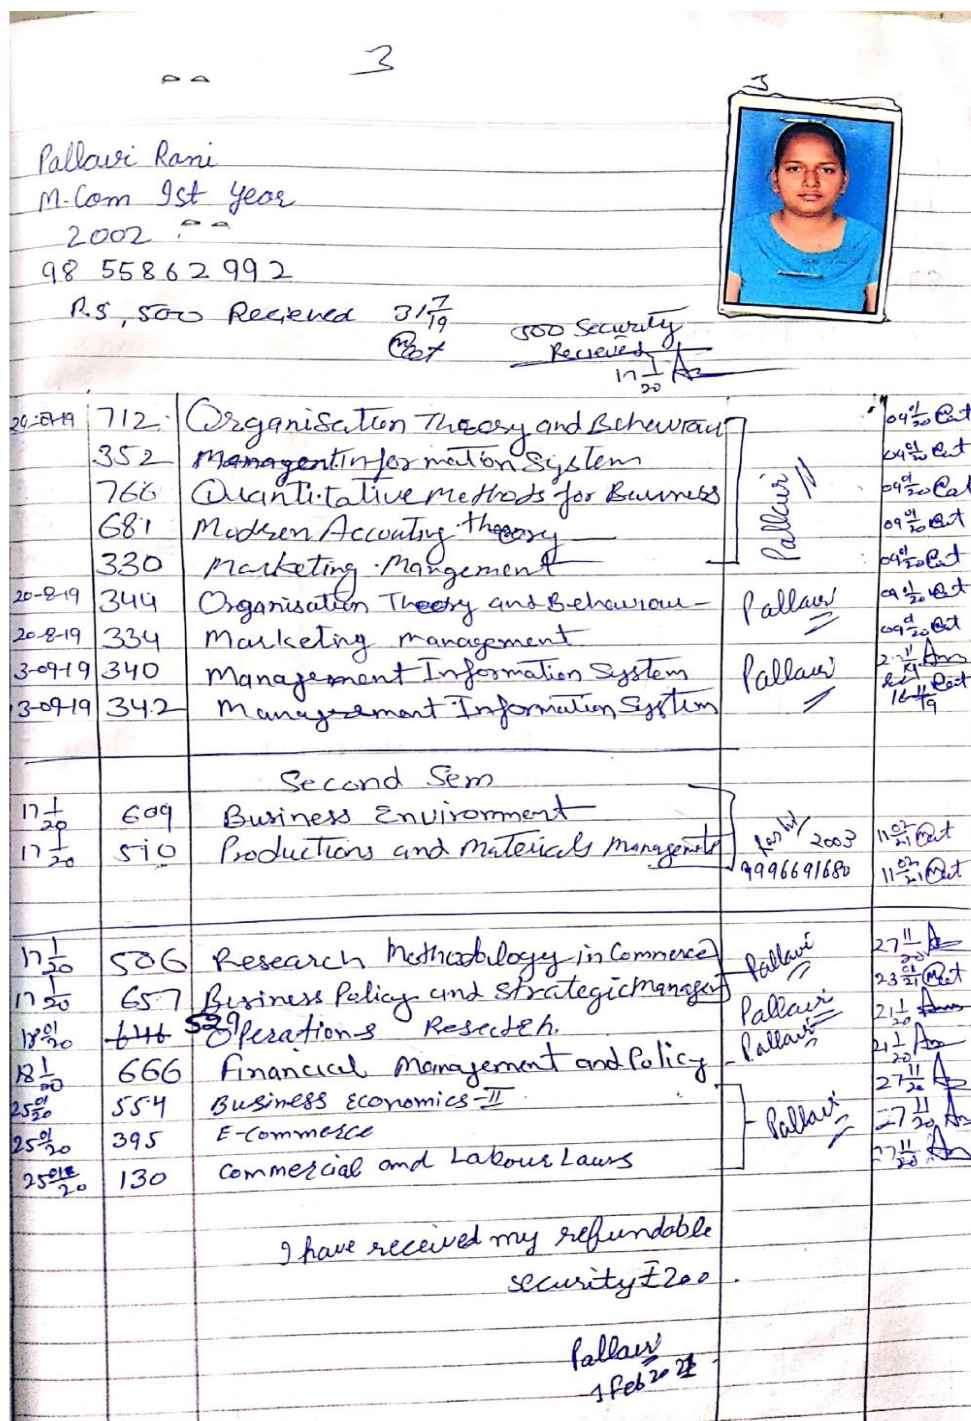 3
Pallavi Rani
M.Com Ist Year
2002
98 55862992
RS, 500 Recieved 31 7/19
500 Security
Recieved
17 1/20
712 Organisation Theory and Behaviour 04 01/20
352 Managent information System 04 01/20
766 Quantitative methods for Business 04 01/20
681 Modern Accouting theory 09 01/20
330 Marketing Mangement 04 01/20
Pallavi
20-8-19 344 Organisation Theory and Behaviour - Pallavi
20-8-19 334 Marketing management
3-09-19 340 Management Information System Pallavi
3-09-19 342 Management Information System
Second Sem
17 1/20 609 Business Environment
17 1/20 510 Productions and Materials Managemets 2003 11 02/21
9996691680 11 02/21
17 1/20 506 Research Methodology in Commerce Pallavi 27 11/20
17 1/20 657 Business Policy and Strategic Managent Pallavi 23 01/21
18 01/20 646 529 Operations Research. Pallavi 21 1/20
18 1/20 666 Financial Management and Policy - 21 1/20
25 01/20 554 Business Economics-II 27 11/20
25 01/20 395 E-commerce Pallavi 27 11/20
25 01/20 130 Commercial and Labour Laws 27 11/20
I have received my refundable
security ₹200.
Pallavi
1 Feb 2021